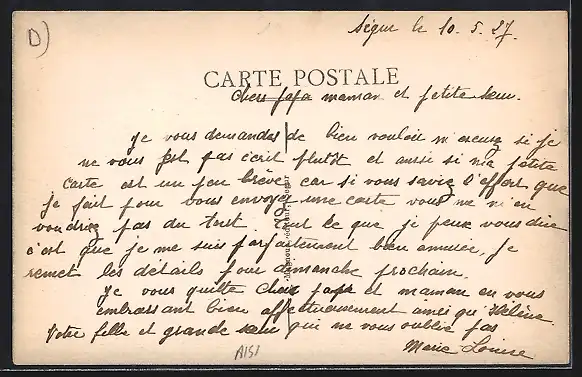 D)
Ségur le 10.5.27.
CARTE POSTALE
Chers papa maman et petite sœur.
Je vous demandes de bien vouloir m'excusez si je
ne vous est pas écrit plutôt et aussi si ma petite
carte est un peu brève car si vous saviez l'effort que
je fait pour vous envoyez une carte vous ne m'en
voudriez pas du tout. Tout ce que je peux vous dire
c'est que je me suis parfaitement bien amusée, Je
remet les détails pour dimanche prochain.
Je vous quitte cher papa et maman en vous
embrassant bien affectueusement ainsi qu'Hélène.
Votre fille et grande sœur qui ne vous oublie pas
Marie Louise
A151